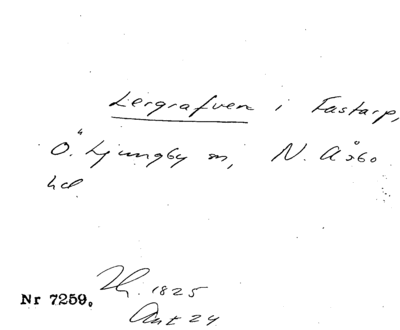 Lergrafven i Fastarp,
Ö. Ljungby sn, N. Åsbo
hd
Nr 7259.
1825
Ant 24